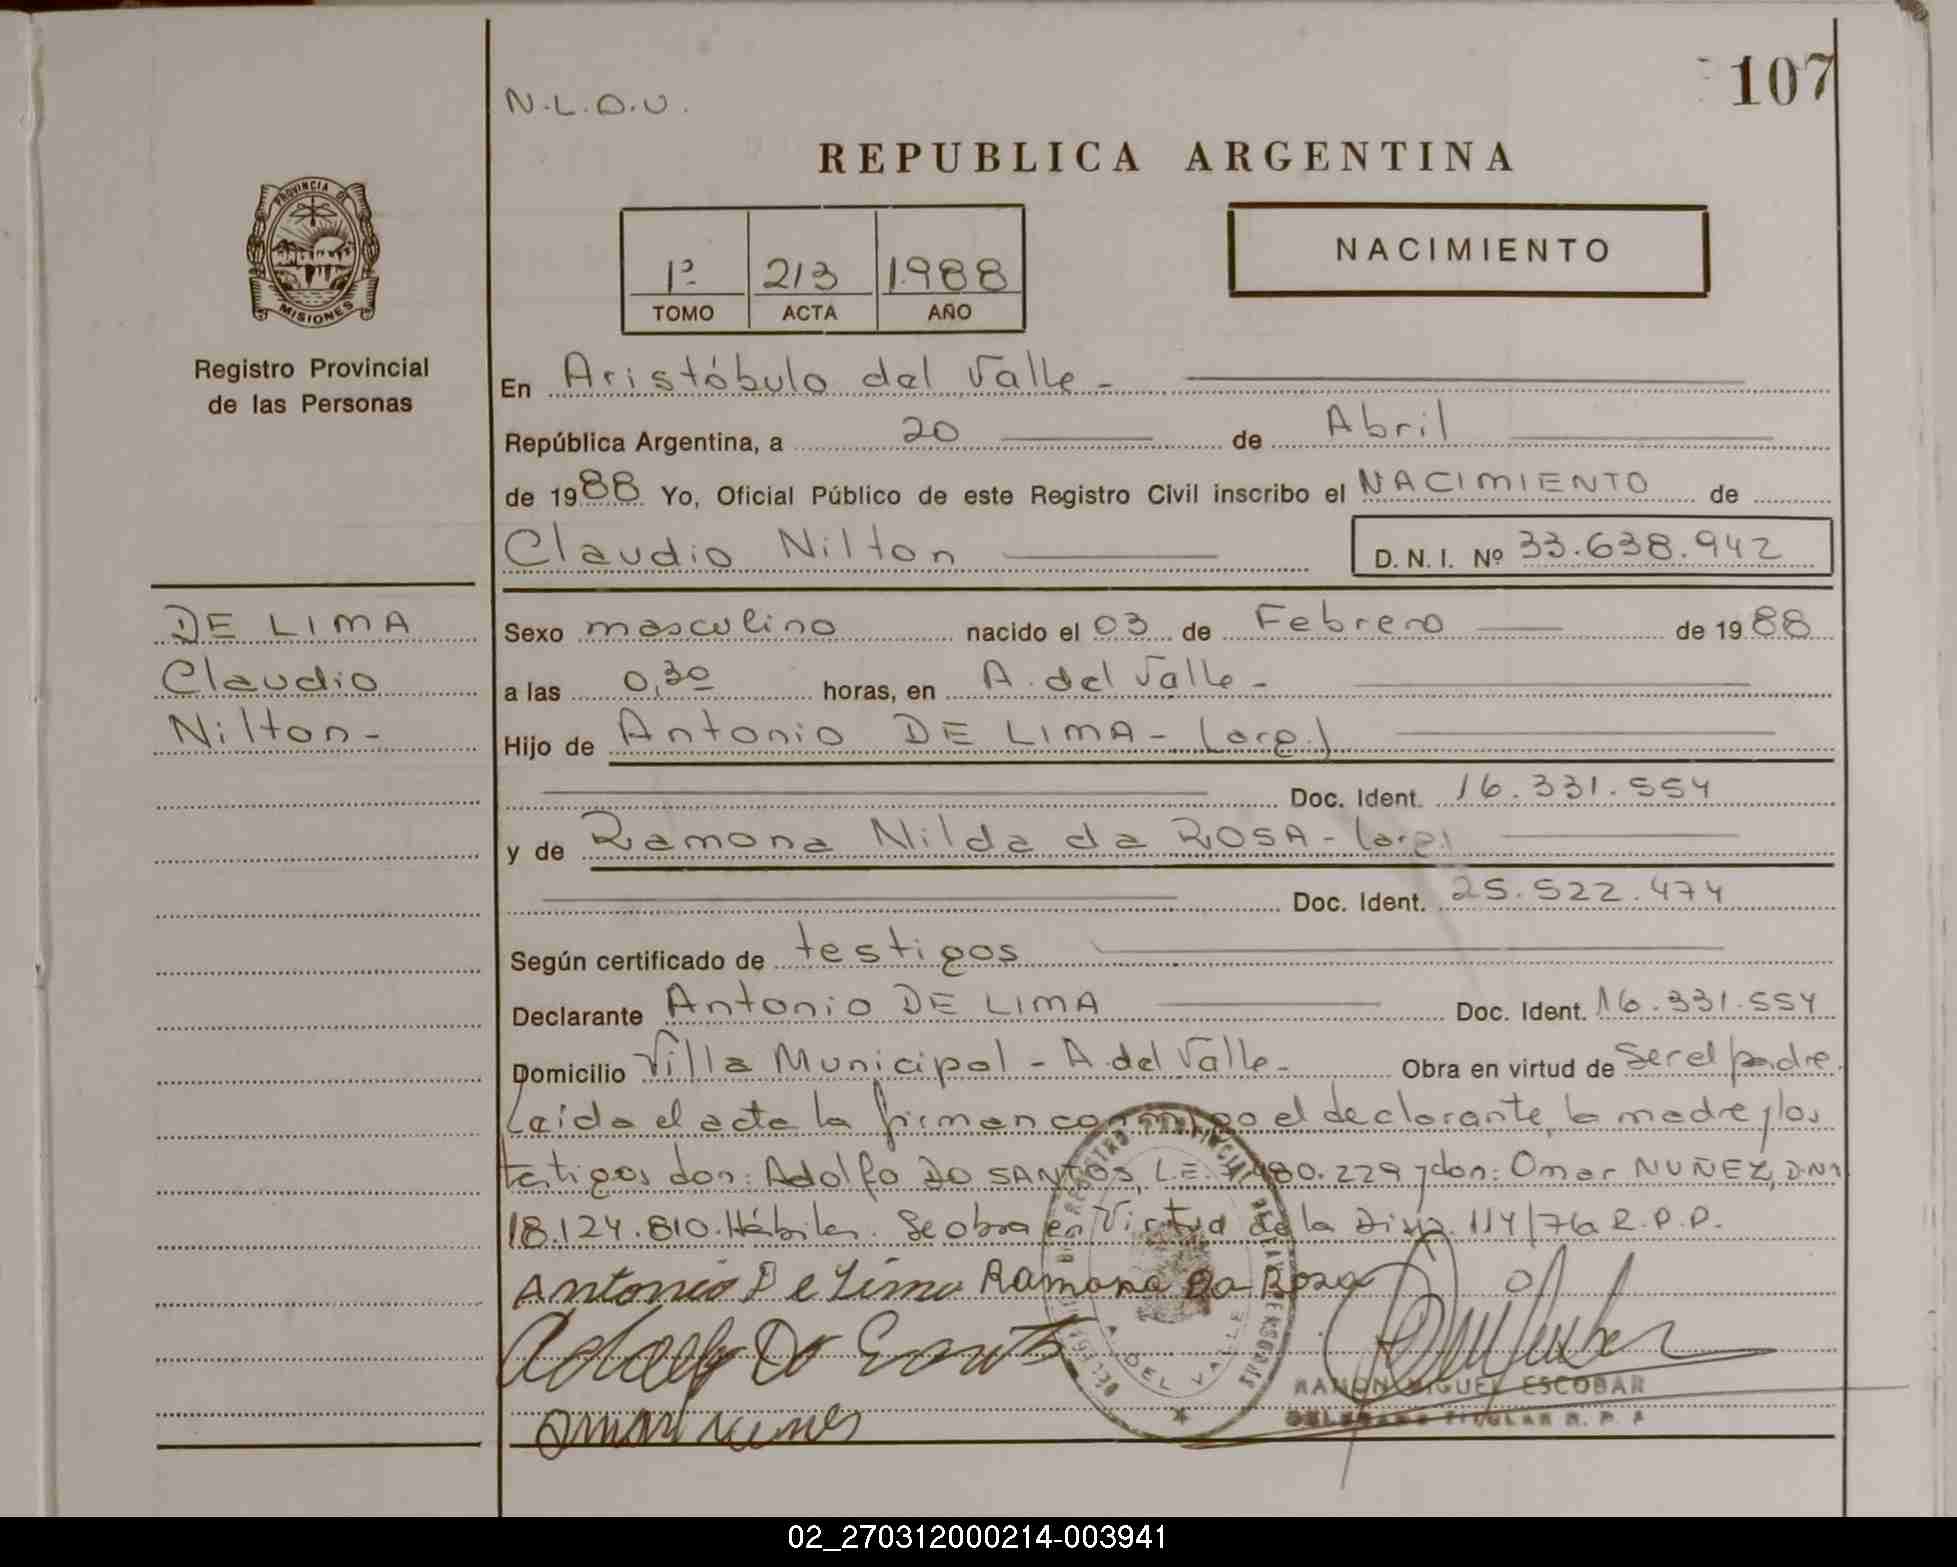 107
N.L.O.U.
REPUBLICA ARGENTINA
PROVINCIA DE
MISIONES
Registro Provincial
de las Personas
1º 213 1988
TOMO ACTA AÑO
NACIMIENTO
En Aristóbulo del Valle -
República Argentina, a 20 de Abril
de 1988 Yo, Oficial Público de este Registro Civil inscribo el NACIMIENTO de
Claudio Nilton D.N.I. Nº 33.638.942
DE LIMA
Claudio
Nilton -
Sexo masculino nacido el 03 de Febrero de 1988
a las 0,30 horas, en A. del Valle -
Hijo de Antonio DE LIMA - (arg.)
Doc. Ident. 16.331.554
y de Ramona Nilda da ROSA - (arg)
Doc. Ident. 25.522.474
Según certificado de testigos
Declarante Antonio DE LIMA Doc. Ident. 16.331.554
Domicilio Villa Municipal - A. del Valle - Obra en virtud de Ser el padre.
Leida el acta la firman conmigo el declarante, la madre y los
testigos don: Adolfo DO SANTOS, L.E. 7.480.229 y don: Omar NUÑEZ, D.N.I.
18.124.810. Hábiles. Se obra en Virtud de la Disp. 114/76 R.P.P.
Antonio De Lima Ramona Da Rosa
Adolfo Do Santos
Omar Nunes
A. DEL VALLE
RAMON MIGUEL ESCOBAR
DELEGADO TITULAR R. P. P.
02_270312000214-003941